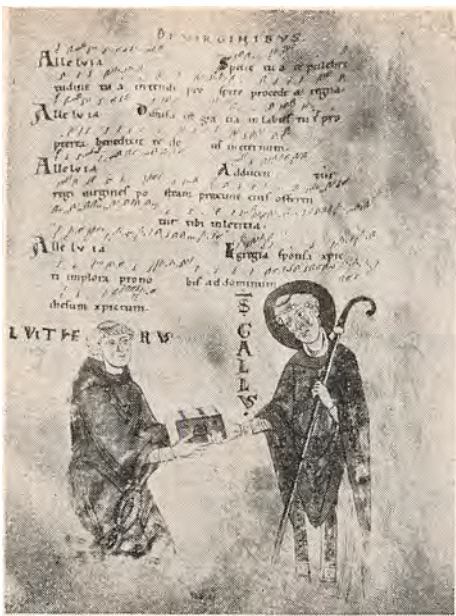 DE VIRGINIBVS
Alleluia Specie tua et pulchri
tudine tua intende pro spere procede et regna.
Alle luia Diffusa est gra tia in labiis tuis pro
pterea benedixit te de us in eternum.
Alleluia Adducen tur
regi virgines po proxime eius offeren
tur tibi in letitia.
Alle lu ia Egregia sponsa xpic
ti implora prono bis ad dominum
ihesum xpictum.
LVITHE RVS
S GALLVS.